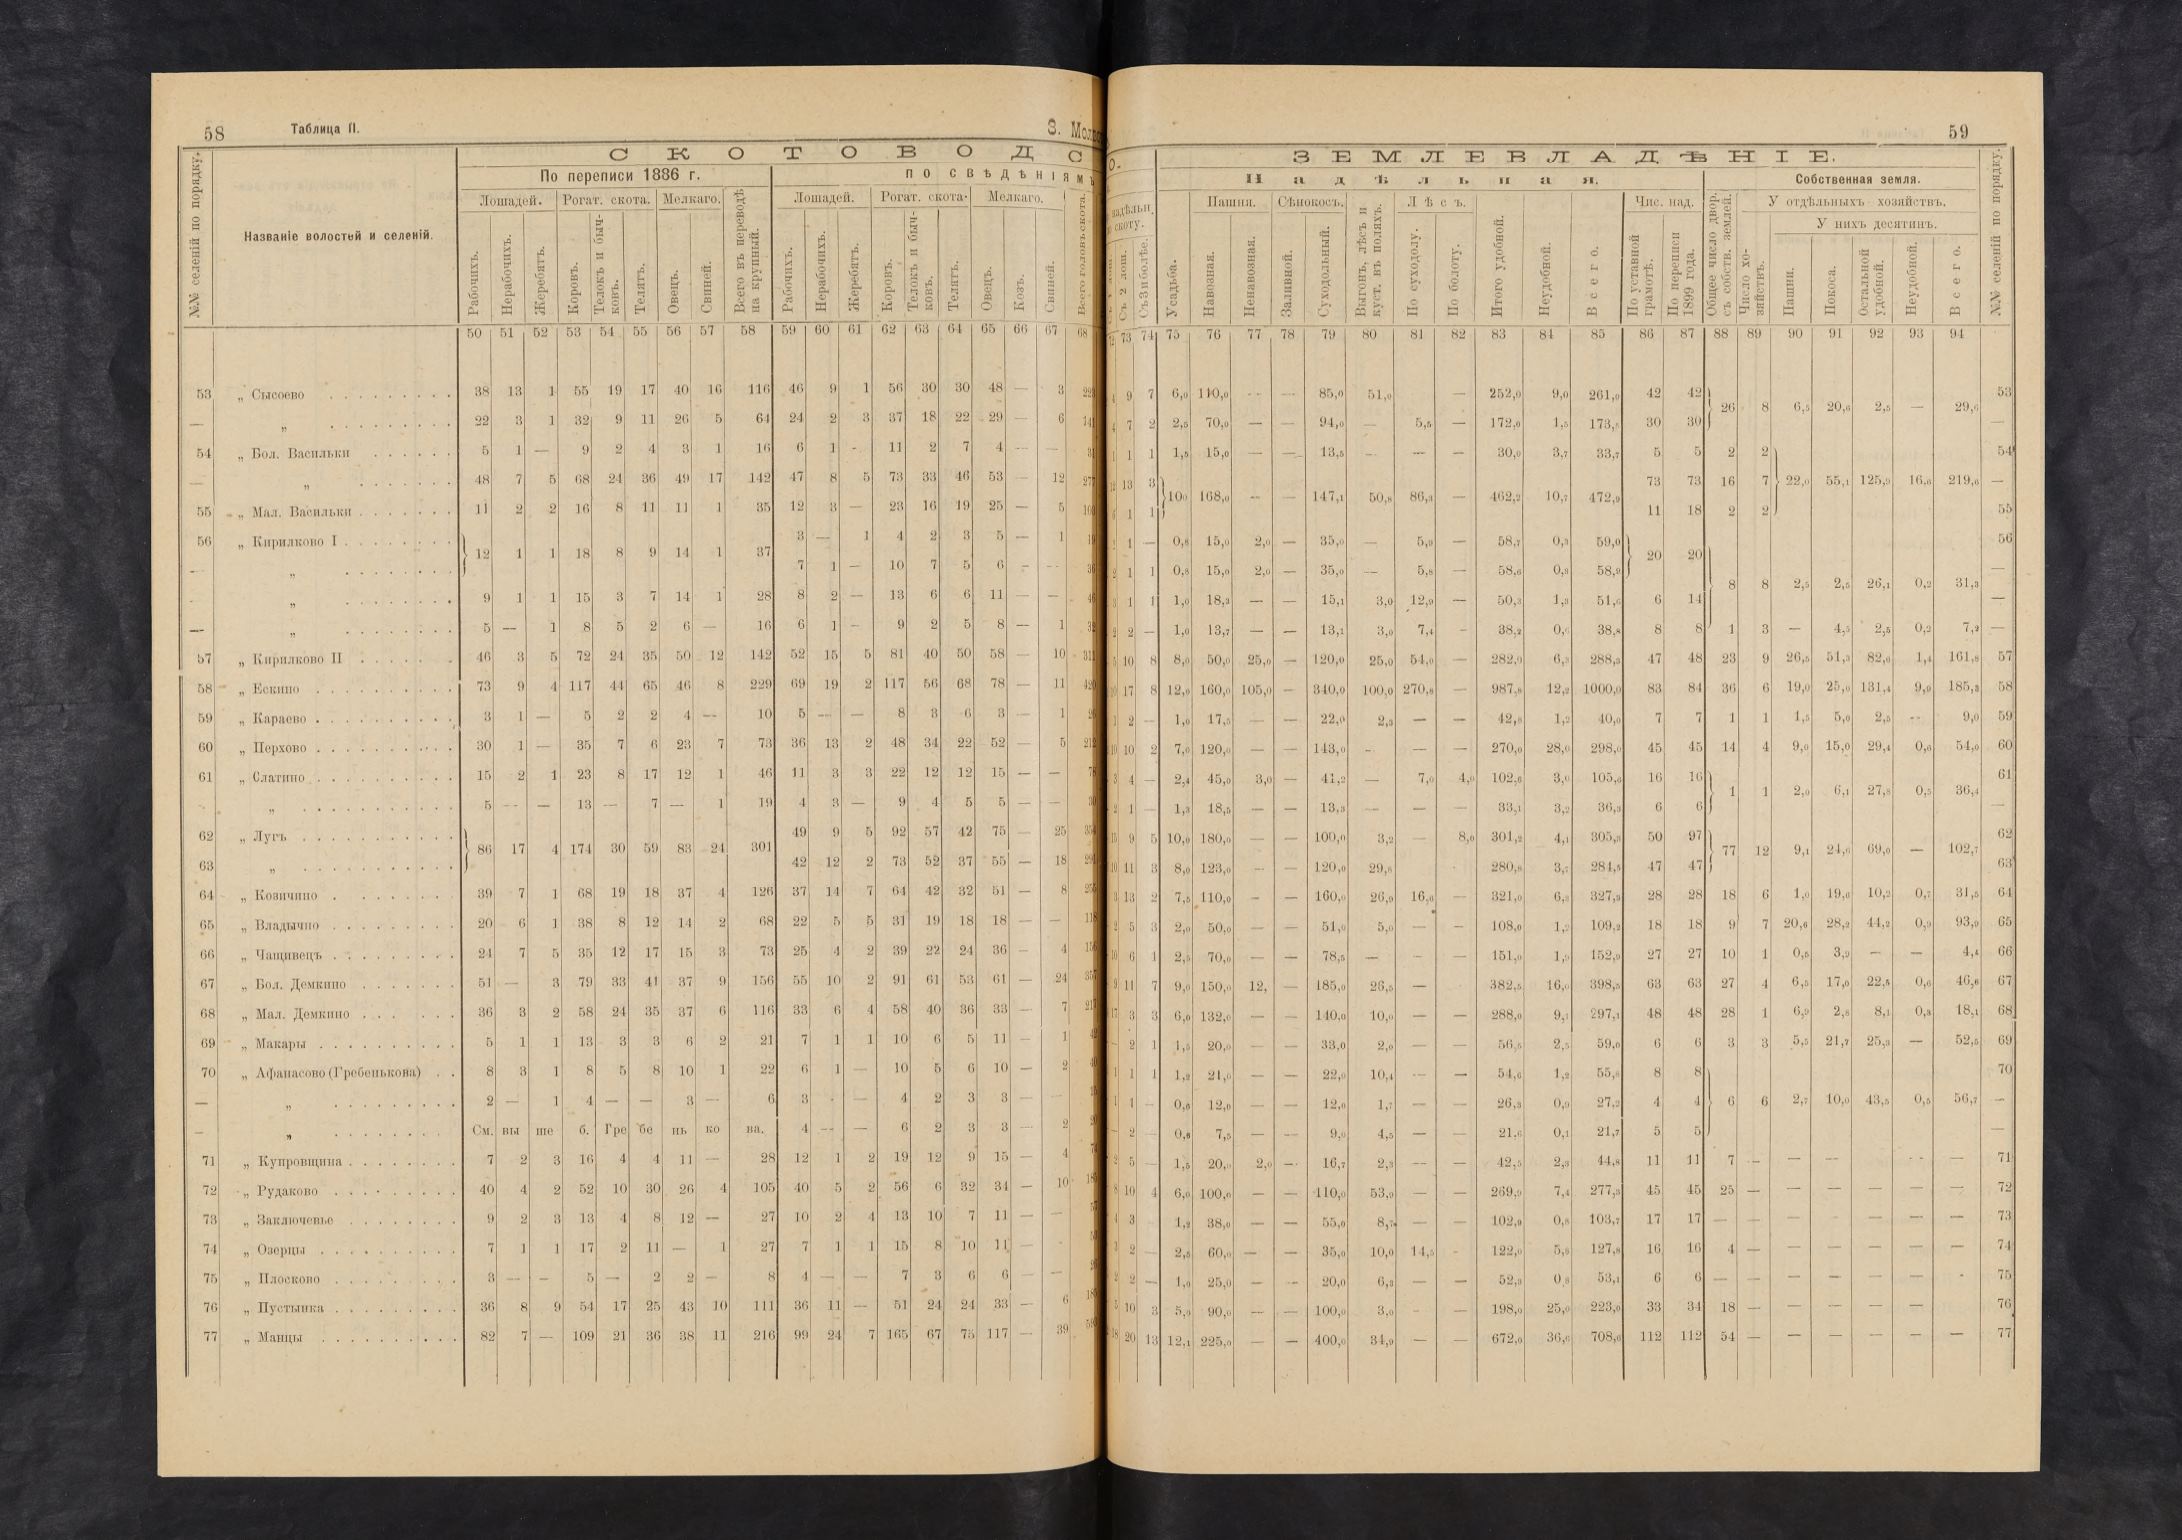 58 Таблица II. 3. Молво
С К О Т О В О Д С
По переписи 1886 г. по свѣдѣніямъ
Лошадей. Рогат. скота. Мелкаго. Лошадей. Рогат. скота. Мелкаго.
№№ селеній по порядку. Названіе волостей и селеній. Рабочихъ. Нерабочихъ. Жеребятъ. Коровъ. Телокъ и бычковъ. Телятъ. Овецъ. Свиней. Всего въ переводѣ на крупный. Рабочихъ. Нерабочихъ. Жеребятъ. Коровъ. Телокъ и бычковъ. Телятъ. Овецъ. Козъ. Свиней. Всего головъ скота.
50 51 52 53 54 55 56 57 58 59 60 61 62 63 64 65 66 67 68
53 „ Сысоево 38 13 1 55 19 17 40 16 116 46 9 1 56 30 30 48 — 3
— „ 22 3 1 32 9 11 26 5 64 24 2 3 37 18 22 29 — 6
54 „ Бол. Васильки 5 1 — 9 2 4 3 1 16 6 1 - 11 2 7 4 — —
— „ 48 7 5 68 24 36 49 17 142 47 8 5 73 33 46 53 — 12
55 „ Мал. Васильки 11 2 2 16 8 11 11 1 35 12 3 — 23 16 19 25 — 5
56 „ Кирилково I 12 1 1 18 8 9 14 1 37 3 — 1 4 2 3 5 — 1
„ 7 1 — 10 7 5 6 - --
„ 9 1 1 15 3 7 14 1 28 8 2 — 13 6 6 11 — —
— „ 5 — 1 8 5 2 6 — 16 6 1 — 9 2 5 8 — 1
57 „ Кирилково II 46 3 5 72 24 35 50 12 142 52 15 5 81 40 50 58 — 10
58 „ Ескино 73 9 4 117 44 65 46 8 229 69 19 2 117 56 68 78 — 11
59 „ Караево 3 1 — 5 2 2 4 — 10 5 — — 8 3 6 3 — 1
60 „ Перхово 30 1 — 35 7 6 23 7 73 36 13 2 48 34 22 52 — 5
61 „ Слатино 15 2 1 23 8 17 12 1 46 11 3 3 22 12 12 15 — —
„ 5 — — 13 — 7 — 1 19 4 3 — 9 4 5 5 — —
62 „ Лугъ 86 17 4 174 30 59 83 24 301 49 9 5 92 57 42 75 — 25
63 „ 42 12 2 73 52 37 55 — 18
64 „ Козичино 39 7 1 68 19 18 37 4 126 37 14 7 64 42 32 51 — 8
65 „ Владычно 20 6 1 38 8 12 14 2 68 22 5 5 31 19 18 18 — —
66 „ Чащивецъ 24 7 5 35 12 17 15 3 73 25 4 2 39 22 24 36 — 4
67 „ Бол. Демкино 51 — 3 79 33 41 37 9 156 55 10 2 91 61 53 61 — 24
68 „ Мал. Демкино 36 3 2 58 24 35 37 6 116 33 6 4 58 40 36 33 — 7
69 „ Макары 5 1 1 13 3 3 6 2 21 7 1 1 10 6 5 11 — 1
70 „ Афанасово (Гребенькова) 8 3 1 8 5 8 10 1 22 6 1 — 10 5 6 10 — 2
— „ 2 — 1 4 — — 3 — 6 3 - — 4 2 3 3 —
— „ См. вы ше б. Гре бе нь ко ва. 4 — — 6 2 3 3 — 2
71 „ Купровщина 7 2 3 16 4 4 11 — 28 12 1 2 19 12 9 15 — 4
72 „ Рудаково 40 4 2 52 10 30 26 4 105 40 5 2 56 6 32 34 — 10
73 „ Заключевье 9 2 3 13 4 8 12 — 27 10 2 4 13 10 7 11 — —
74 „ Озерцы 7 1 1 17 2 11 — 1 27 7 1 1 15 8 10 11 — -
75 „ Плосково 3 — — 5 — 2 2 — 8 4 — — 7 3 6 6 — —
76 „ Пустынка 36 8 9 54 17 25 43 10 111 36 11 — 51 24 24 33 — 6
77 „ Манцы 82 7 — 109 21 36 38 11 216 99 24 7 165 67 75 117 — 39
59
О. З Е М Л Е В Л А Д Ѣ Н І Е.
Н а д ѣ л ь н а я. Собственная земля.
надѣльн. скоту. Пашня. Сѣнокосъ. Лѣсъ. Чис. над. У отдѣльныхъ хозяйствъ.
У нихъ десятинъ.
Съ 2 лош. Съ 3 и болѣе. Усадьба. Навозная. Ненавозная. Заливной. Суходольный. Выгонъ, лѣсъ и куст. въ поляхъ. По суходолу. По болоту. Итого удобной. Неудобной. Всего. По уставной грамотѣ. По переписи 1899 года. Общее число двор. съ собств. землей. Число хозяйствъ. Пашни. Покоса. Остальной удобной. Неудобной. Всего. №№ селеній по порядку.
73 74 75 76 77 78 79 80 81 82 83 84 85 86 87 88 89 90 91 92 93 94
9 7 6,0 110,0 — — 85,0 51,0 — 252,0 9,0 261,0 42 42 26 8 6,5 20,6 2,5 — 29,6 53
7 2 2,5 70,0 — — 94,0 — 5,5 — 172,0 1,5 173,5 30 30 —
1 1 1,5 15,0 — — 13,5 — — — 30,0 3,7 33,7 5 5 2 2 54
13 3 73 73 16 7 22,0 55,1 125,9 16,6 219,6 —
10,0 168,0 — — 147,1 50,8 86,3 — 462,2 10,7 472,9
1 1 11 18 2 2 55
1 — 0,8 15,0 2,0 — 35,0 — 5,9 — 58,7 0,3 59,0 20 20 56
1 1 0,8 15,0 2,0 — 35,0 — 5,8 — 58,6 0,3 58,9 —
8 8 2,5 2,5 26,1 0,2 31,3
1 1 1,0 18,3 — — 15,1 3,0 12,9 — 50,3 1,3 51,6 6 14 —
2 — 1,0 13,7 — — 13,1 3,0 7,4 - 38,2 0,6 38,8 8 8 1 3 — 4,5 2,5 0,2 7,2 —
10 8 8,0 50,0 25,0 — 120,0 25,0 54,0 — 282,0 6,3 288,3 47 48 23 9 26,5 51,3 82,6 1,4 161,8 57
17 8 12,0 160,0 105,0 — 340,0 100,0 270,8 — 987,8 12,2 1000,0 83 84 36 6 19,0 25,0 131,4 9,9 185,3 58
2 — 1,0 17,5 — — 22,0 2,3 — — 42,8 1,2 40,0 7 7 1 1 1,5 5,0 2,5 — 9,0 59
10 2 7,0 120,0 — — 143,0 - — — 270,0 28,0 298,0 45 45 14 4 9,0 15,0 29,4 0,6 54,0 60
4 — 2,4 45,0 3,0 — 41,2 — 7,0 4,0 102,6 3,0 105,6 16 16 61
1 1 2,0 6,1 27,8 0,5 36,4
1 — 1,3 18,5 — — 13,3 — — — 33,1 3,2 36,3 6 6 —
9 5 10,0 180,0 — — 100,0 3,2 — 8,0 301,2 4,1 305,3 50 97 62
77 12 9,1 24,6 69,0 — 102,7
11 3 8,0 123,0 — — 120,0 29,8 280,8 3,7 284,5 47 47 63
13 2 7,5 110,0 - — 160,0 26,9 16,6 — 321,0 6,3 327,3 28 28 18 6 1,0 19,6 10,2 0,7 31,5 64
5 3 2,0 50,0 — — 51,0 5,0 — — 108,0 1,2 109,2 18 18 9 7 20,6 28,2 44,2 0,9 93,9 65
6 1 2,5 70,0 — — 78,5 — - — 151,0 1,9 152,9 27 27 10 1 0,5 3,9 — — 4,4 66
11 7 9,0 150,0 12, — 185,0 26,5 — 382,5 16,0 398,5 63 63 27 4 6,5 17,0 22,5 0,6 46,6 67
3 3 6,0 132,0 — — 140,0 10,0 — — 288,0 9,1 297,1 48 48 28 1 6,9 2,8 8,1 0,3 18,1 68
2 1 1,5 20,0 — — 33,0 2,0 — — 56,5 2,5 59,0 6 6 3 3 5,5 21,7 25,3 — 52,5 69
1 1 1,2 21,0 — — 22,0 10,4 — — 54,6 1,2 55,8 8 8 70
1 — 0,6 12,0 — — 12,0 1,7 — — 26,3 0,9 27,2 4 4 6 6 2,7 10,0 43,5 0,5 56,7 —
2 — 0,6 7,5 — — 9,0 4,5 — — 21,6 0,1 21,7 5 5 —
5 — 1,5 20,0 2,0 — 16,7 2,3 — — 42,5 2,3 44,8 11 11 7 — — — — — 71
10 4 6,0 100,0 — — 110,0 53,9 — — 269,9 7,4 277,3 45 45 25 — — — — — — 72
3 1,2 38,0 — — 55,0 8,7 — — 102,9 0,8 103,7 17 17 — — — — — — — 73
2 — 2,5 60,0 — — 35,0 10,0 14,5 - 122,0 5,8 127,8 16 16 4 — — — — — — 74
2 — 1,0 25,0 — — 20,0 6,3 — — 52,3 0,8 53,1 6 6 — — — — — — - 75
10 3 5,0 90,0 — — 100,0 3,0 - — 198,0 25,0 223,0 33 34 18 — — — — — — 76
20 13 12,1 225,0 — — 400,0 34,9 — — 672,0 36,6 708,6 112 112 54 — — — — — — 77